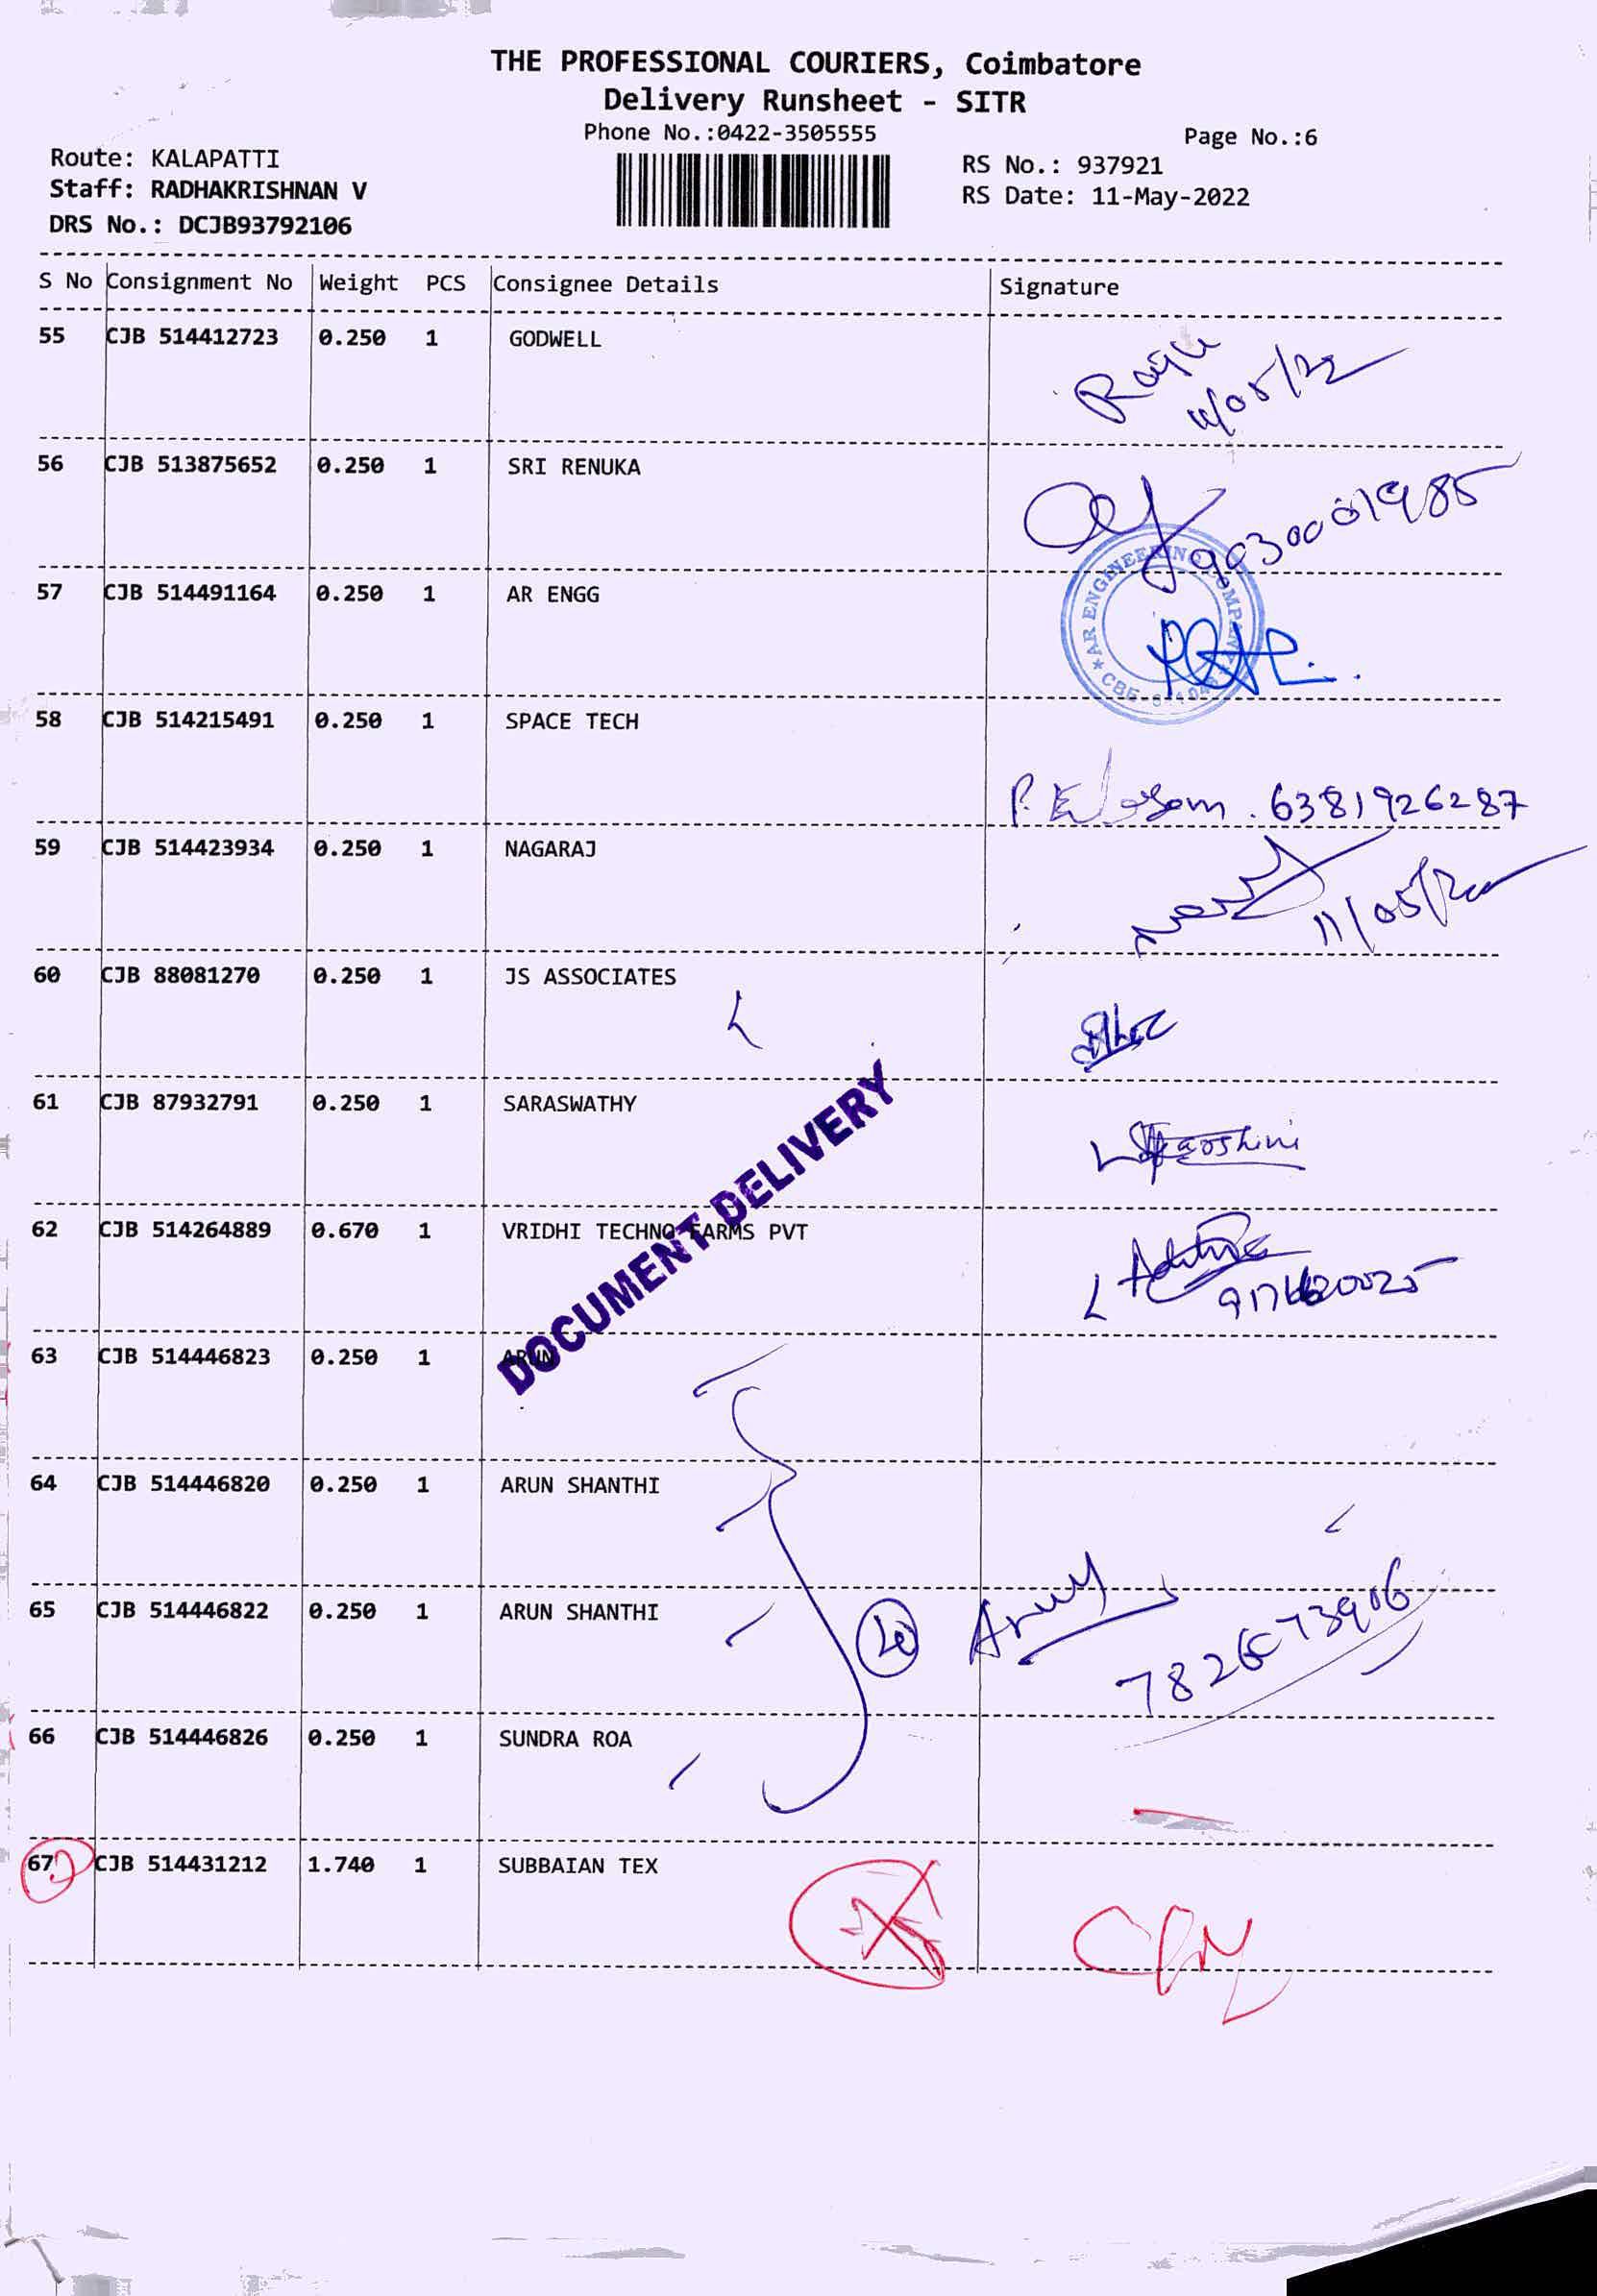 THE PROFESSIONAL COURIERS, Coimbatore
Delivery Runsheet - SITR
Phone No.:0422-3505555
Page No.:6
Route: KALAPATTI
RS No.: 937921
Staff: RADHAKRISHNAN V
RS Date: 11-May-2022
DRS No.: DCJB93792106
S No Consignment No Weight PCS Consignee Details Signature
55 CJB 514412723 0.250 1 GODWELL
11/05/22
56 CJB 513875652 0.250 1 SRI RENUKA
57 CJB 514491164 0.250 1 AR ENGG
AR ENGINEERING COMPANY
58 CJB 514215491 0.250 1 SPACE TECH
6381926287
59 CJB 514423934 0.250 1 NAGARAJ
60 CJB 88081270 0.250 1 JS ASSOCIATES
61 CJB 87932791 0.250 1 SARASWATHY
DOCUMENT DELIVERY
62 CJB 514264889 0.670 1 VRIDHI TECHNO FARMS PVT
63 CJB 514446823 0.250 1 ARUN
64 CJB 514446820 0.250 1 ARUN SHANTHI
65 CJB 514446822 0.250 1 ARUN SHANTHI
66 CJB 514446826 0.250 1 SUNDRA ROA
67 CJB 514431212 1.740 1 SUBBAIAN TEX